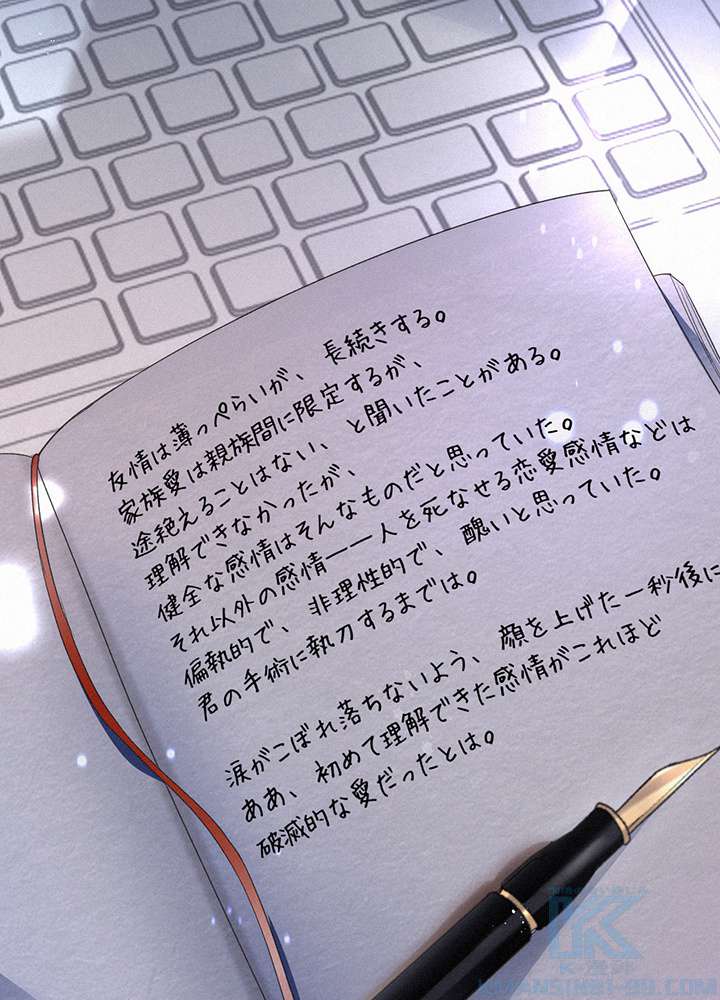 友情は薄っぺらいが、長続きする。
家族愛は親族間に限定するが、
途絶えることはない、と聞いたことがある。
理解できなかったが、
健全な感情はそんなものだと思っていた。
それ以外の感情――人を死なせる恋愛感情などは
偏執的で、非理性的で、醜いと思っていた。
君の手術に執刀するまでは。
涙がこぼれ落ちないよう、顔を上げた一秒後に
ああ、初めて理解できた感情がこれほど
破滅的な愛だったとは。
K